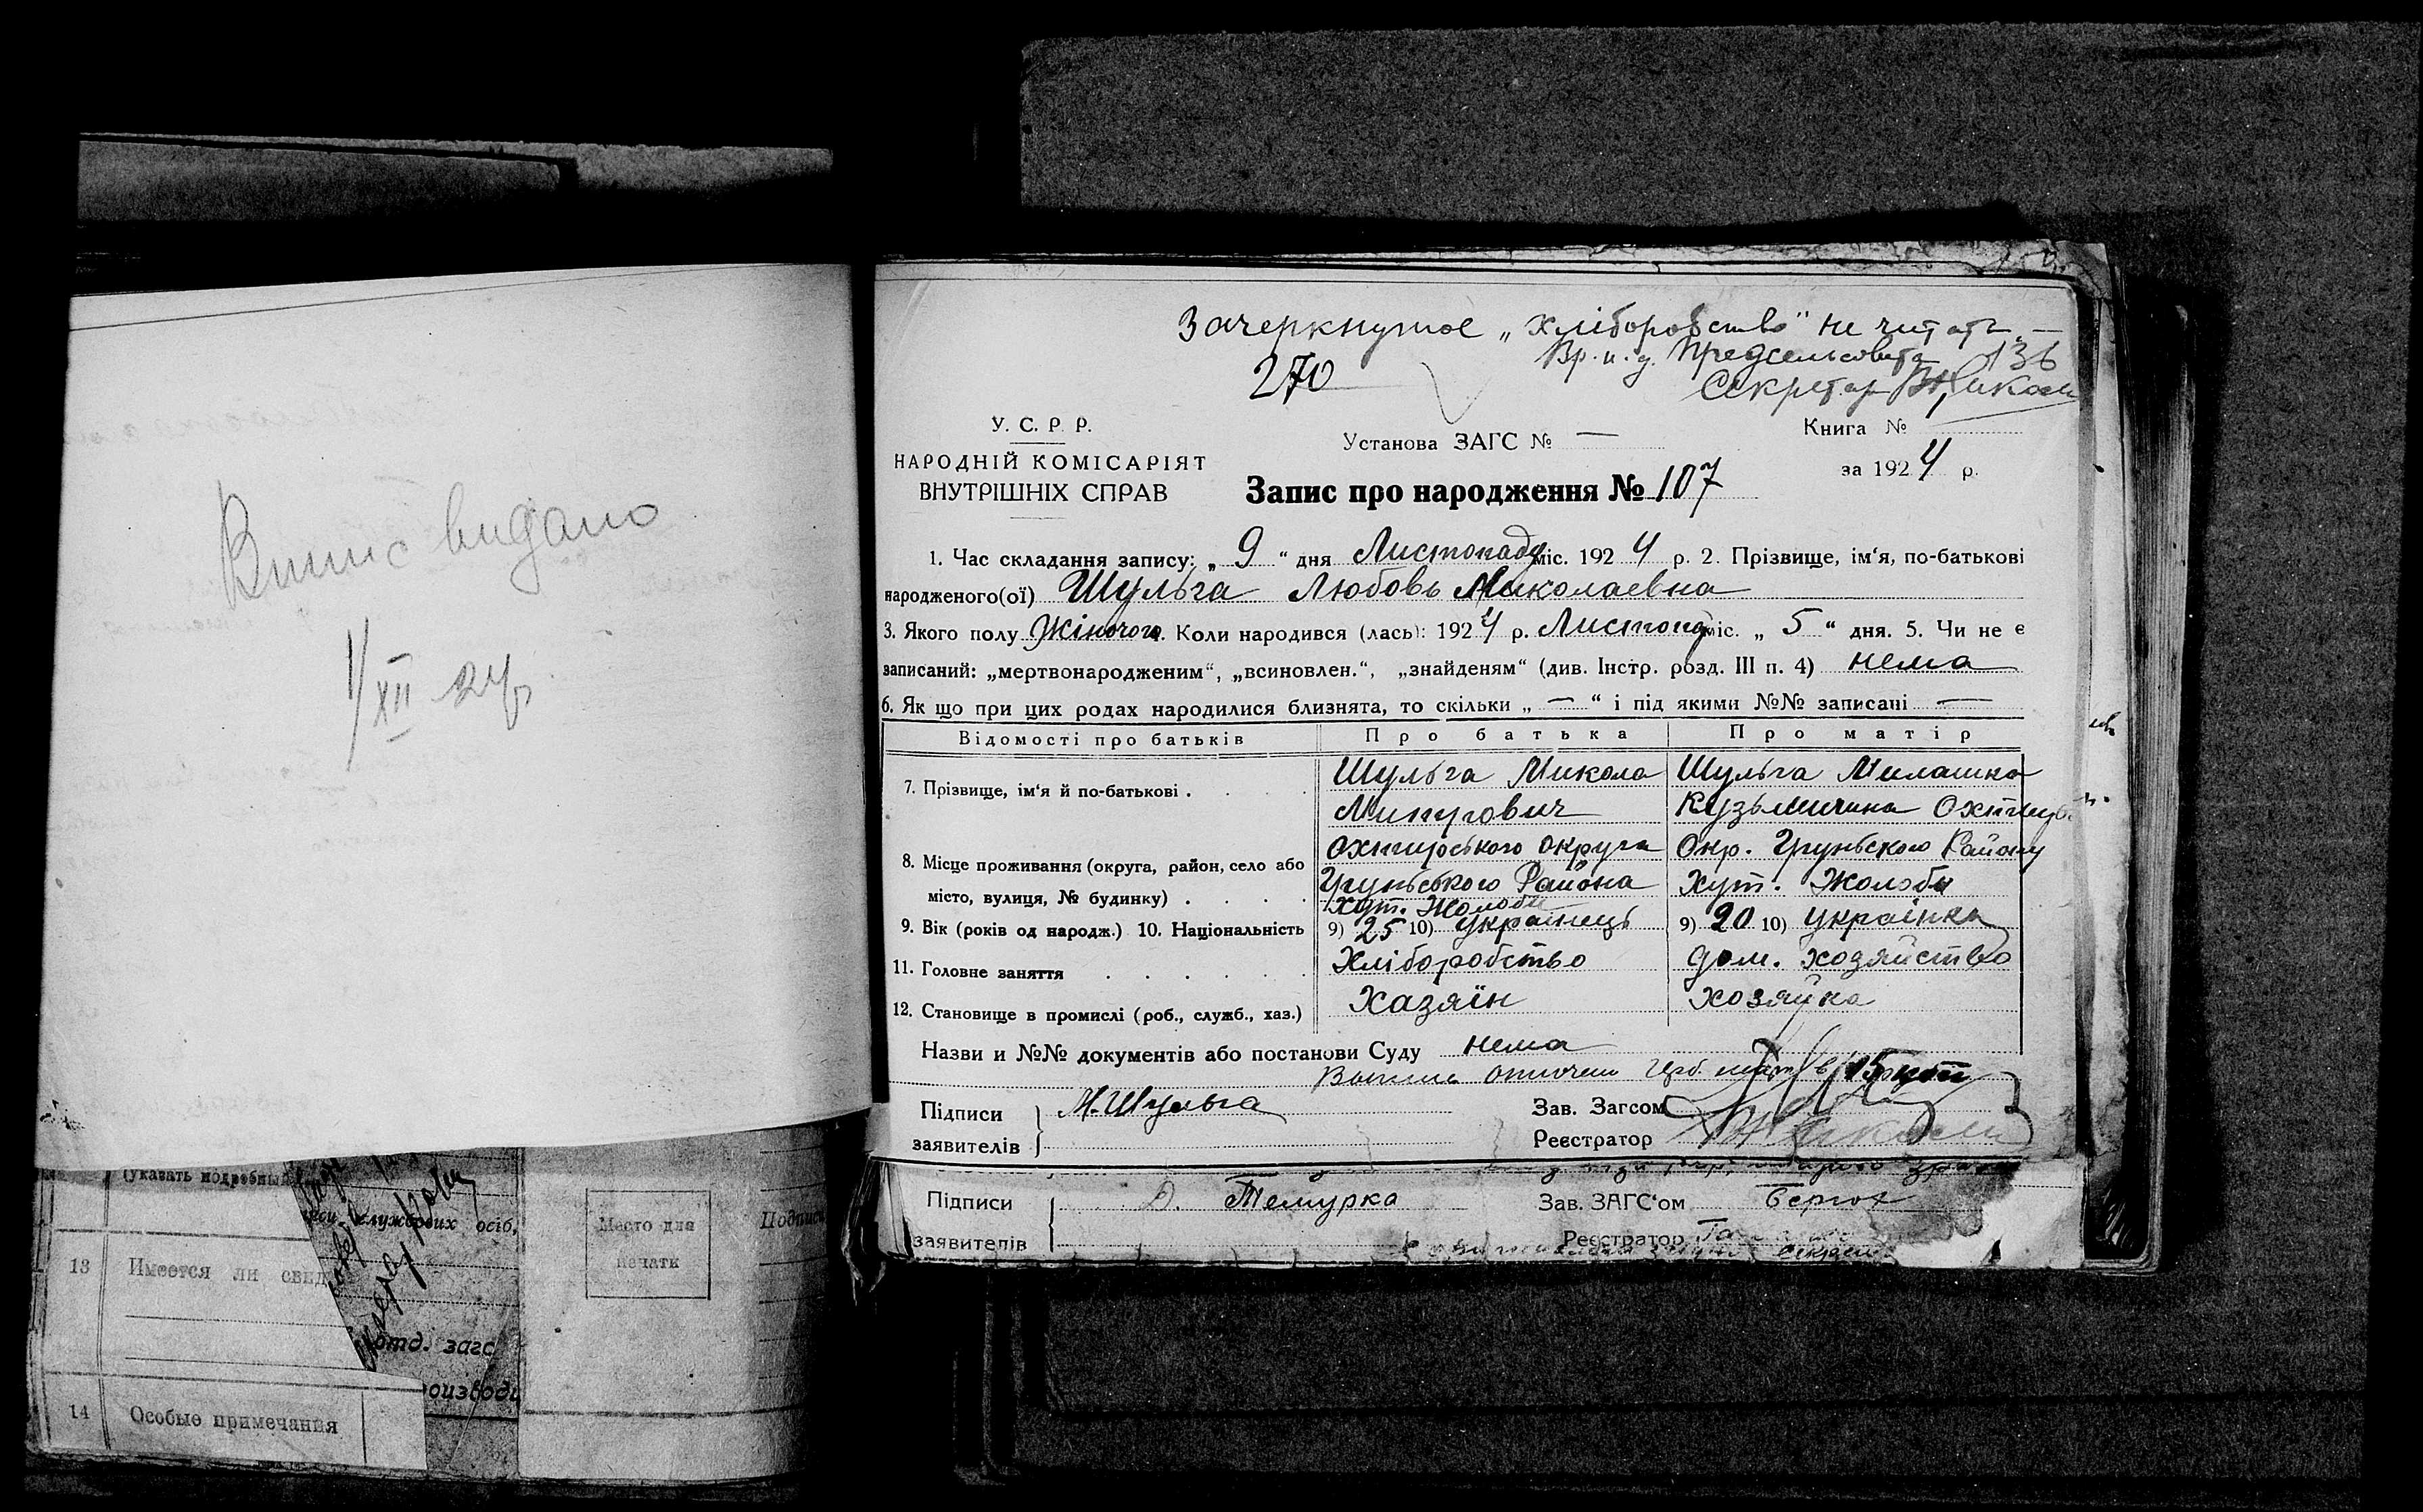 Випис видано
1/XII 24 р.
(указать подробный
службових осіб,
13 Имеется ли свид
отд. загс
14 Особые примечания
Место для
печати
Подписи
Зачеркнутое „Хліборобство" не читать. —
270
Вр. и. д. Предсельсовета
136
Секретар
У. С. Р. Р.
НАРОДНІЙ КОМІСАРІЯТ
ВНУТРІШНІХ СПРАВ
Установа ЗАГС № —
Книга №
за 1924 р.
Запис про народження № 107
1. Час складання запису: „ 9 " дня Листопаду міс. 1924 р. 2. Прізвище, ім'я, по-батькові
народженого(ої) Шульга Любовь Миколаевна
3. Якого полу Жіночого. Коли народився (лась): 1924 р. Листопад міс. „ 5 " дня. 5. Чи не є
записаний: „мертвонародженим", „всиновлен.", „знайденям" (див. Інстр. розд. III п. 4) нема
6. Як що при цих родах народилися близнята, то скільки „ — " і під якими №№ записані —
Відомості про батьків Про батька Про матір
7. Прізвище, ім'я й по-батькові . Шульга Микола Шульга Милашка
Кузьмична
8. Місце проживання (округа, район, село або Охтирського округа Окр. Груньского Району
місто, вулиця, № будинку) . Груньського Района Хут. Жолоби
Хут. Жолоби
9. Вік (років од народж.) 10. Національність 9) 25 10) Українець 9) 20 10) українка
11. Головне заняття Хліборобство дом. хозяйство
12. Становище в промислі (роб., служб., хаз.) Хазяїн хозяйка
Назви и №№ документів або постанови Суду нема
15 коп
Підписи заявителів М. Шульга
Зав. Загсом
Реєстратор
Підписи заявителів Темурка
Зав. ЗАГС'ом
Реєстратор